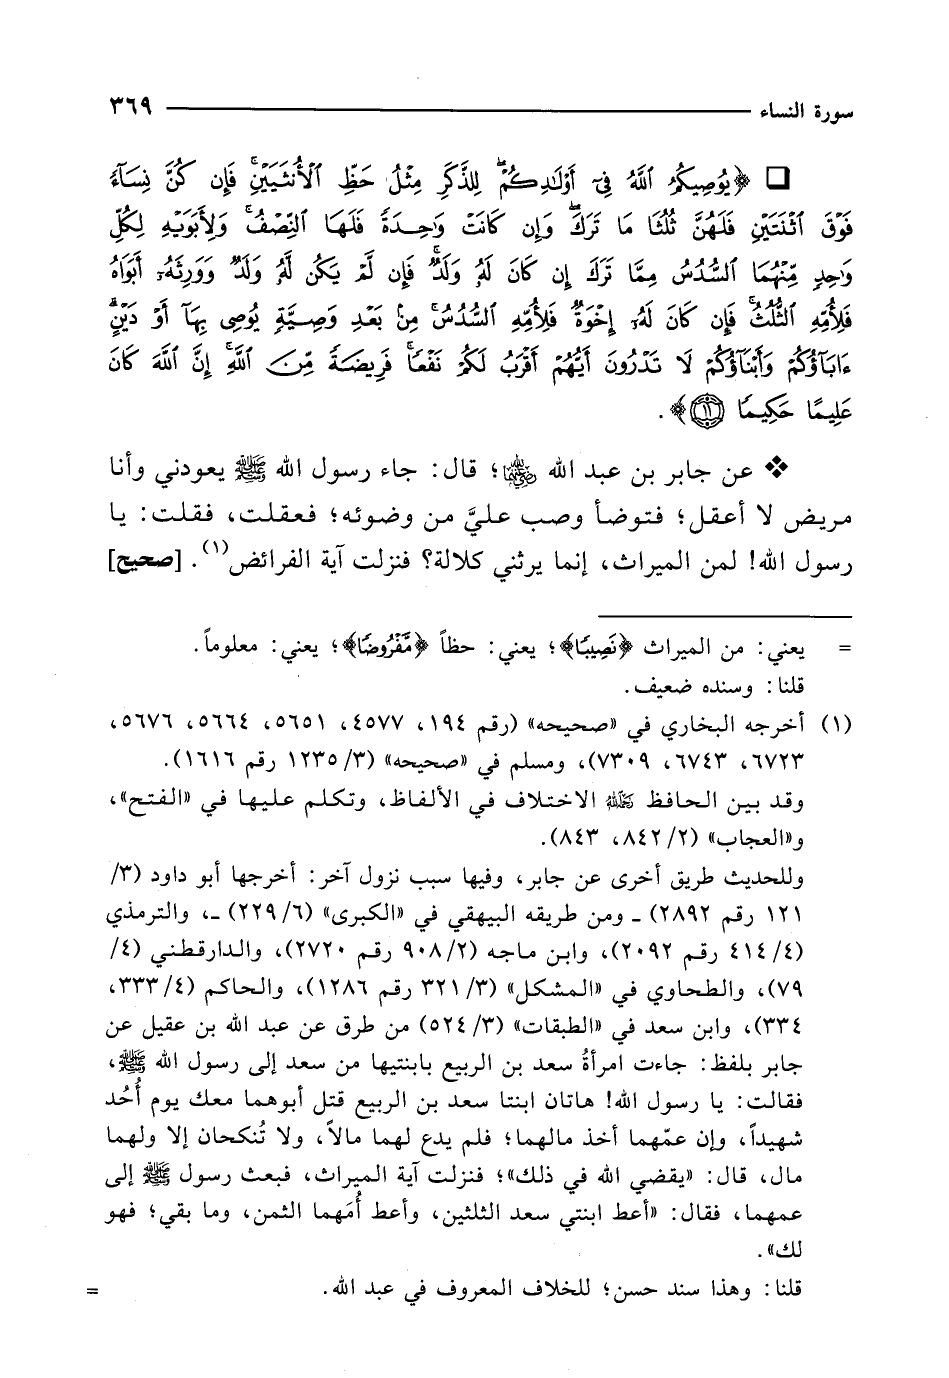 سورة النساء ٣٦٩
❑ ﴿يُوصِيكُمُ ٱللَّهُ فِىٓ أَوْلَٰدِكُمْۖ لِلذَّكَرِ مِثْلُ حَظِّ ٱلْأُنثَيَيْنِۚ فَإِن كُنَّ نِسَآءً
فَوْقَ ٱثْنَتَيْنِ فَلَهُنَّ ثُلُثَا مَا تَرَكَۖ وَإِن كَانَتْ وَٰحِدَةً فَلَهَا ٱلنِّصْفُۚ وَلِأَبَوَيْهِ لِكُلِّ
وَٰحِدٍ مِّنْهُمَا ٱلسُّدُسُ مِمَّا تَرَكَ إِن كَانَ لَهُۥ وَلَدٌۚ فَإِن لَّمْ يَكُن لَّهُۥ وَلَدٌ وَوَرِثَهُۥٓ أَبَوَاهُ
فَلِأُمِّهِ ٱلثُّلُثُۚ فَإِن كَانَ لَهُۥٓ إِخْوَةٌ فَلِأُمِّهِ ٱلسُّدُسُۚ مِنۢ بَعْدِ وَصِيَّةٍ يُوصِى بِهَآ أَوْ دَيْنٍۗ
ءَابَآؤُكُمْ وَأَبْنَآؤُكُمْ لَا تَدْرُونَ أَيُّهُمْ أَقْرَبُ لَكُمْ نَفْعًاۚ فَرِيضَةً مِّنَ ٱللَّهِۗ إِنَّ ٱللَّهَ كَانَ
عَلِيمًا حَكِيمًا ﴿١١﴾﴾.
❖ عن جابر بن عبد الله رضي الله عنهما؛ قال: جاء رسول الله ﷺ يعودني وأنا
مريض لا أعقل؛ فتوضأ وصب عليَّ من وضوئه؛ فعقلت، فقلت: يا
رسول الله! لمن الميراث، إنما يرثني كلالة؟ فنزلت آية الفرائض(١). [صحيح]
= يعني: من الميراث ﴿نَصِيبًا﴾؛ يعني: حظاً ﴿مَّفْرُوضًا﴾؛ يعني: معلوماً.
قلنا: وسنده ضعيف.
(١) أخرجه البخاري في «صحيحه» (رقم ١٩٤، ٤٥٧٧، ٥٦٥١، ٥٦٦٤، ٥٦٧٦،
٦٧٢٣، ٦٧٤٣، ٧٣٠٩)، ومسلم في «صحيحه» (٣/ ١٢٣٥ رقم ١٦١٦).
وقد بين الحافظ رحمه الله الاختلاف في الألفاظ، وتكلم عليها في «الفتح»،
و«العجاب» (٢/ ٨٤٢، ٨٤٣).
وللحديث طريق أخرى عن جابر، وفيها سبب نزول آخر: أخرجها أبو داود (٣/
١٢١ رقم ٢٨٩٢) ـ ومن طريقه البيهقي في «الكبرى» (٦/ ٢٢٩) ـ، والترمذي
(٤/ ٤١٤ رقم ٢٠٩٢)، وابن ماجه (٢/ ٩٠٨ رقم ٢٧٢٠)، والدارقطني (٤/
٧٩)، والطحاوي في «المشكل» (٣/ ٣٢١ رقم ١٢٨٦)، والحاكم (٤/ ٣٣٣،
٣٣٤)، وابن سعد في «الطبقات» (٣/ ٥٢٤) من طرق عن عبد الله بن عقيل عن
جابر بلفظ: جاءت امرأةُ سعد بن الربيع بابنتيها من سعد إلى رسول الله ﷺ،
فقالت: يا رسول الله! هاتان ابنتا سعد بن الربيع قتل أبوهما معك يوم أُحُد
شهيداً، وإن عمّهما أخذ مالهما؛ فلم يدع لهما مالاً، ولا تُنكحان إلا ولهما
مال، قال: «يقضي الله في ذلك»؛ فنزلت آية الميراث، فبعث رسول ﷺ إلى
عمهما، فقال: «أعط ابنتي سعد الثلثين، وأعط أُمَهما الثمن، وما بقي؛ فهو
لك».
قلنا: وهذا سند حسن؛ للخلاف المعروف في عبد الله. =